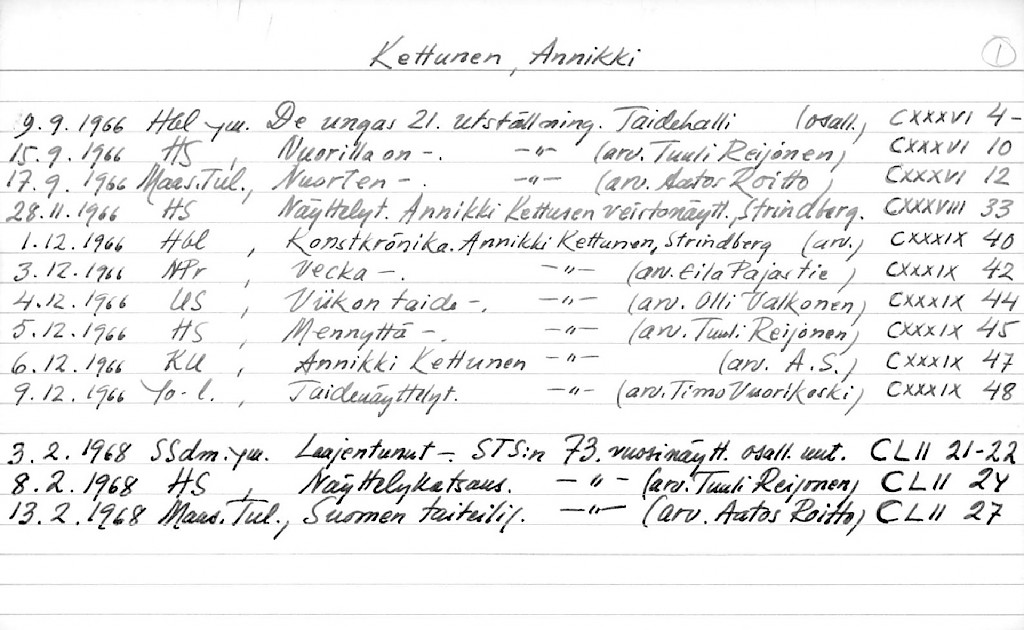 Kettunen, Annikki ①
9.9.1966 Hbl ym. De ungas 21. utställning. Taidehalli (osall.) CXXXVI 4-
15.9.1966 HS, Nuorilla on -. -"- (arv. Tuuli Reijonen) CXXXVI 10
17.9.1966 Maas.Tul., Nuorten -. -"- (arv. Aatos Roitto) CXXXVI 12
28.11.1966 HS Näyttelyt. Annikki Kettusen veistonäytt., Strindberg. CXXXVIII 33
1.12.1966 Hbl, Konstkrönika. Annikki Kettunen, Strindberg (arv.) CXXXIX 40
3.12.1966 NPr, Vecka -. -"- (arv. Eila Pajastie) CXXXIX 42
4.12.1966 US, Viikon taide -. -"- (arv. Olli Valkonen) CXXXIX 44
5.12.1966 HS, Mennyttä -. -"- (arv. Tuuli Reijonen) CXXXIX 45
6.12.1966 KU, Annikki Kettunen -"- (arv. A.S.) CXXXIX 47
9.12.1966 Yo-l., Taidenäyttelyt. -"- (arv. Timo Vuorikoski) CXXXIX 48
3.2.1968 SSdm.ym. Laajentunut -. STS:n 73. vuosinäytt. osall. mut. CLII 21-22
8.2.1968 HS, Näyttelykatsaus. -"- (arv. Tuuli Reijonen) CLII 24
13.2.1968 Maas.Tul., Suomen taiteilij. -"- (arv. Aatos Roitto) CLII 27